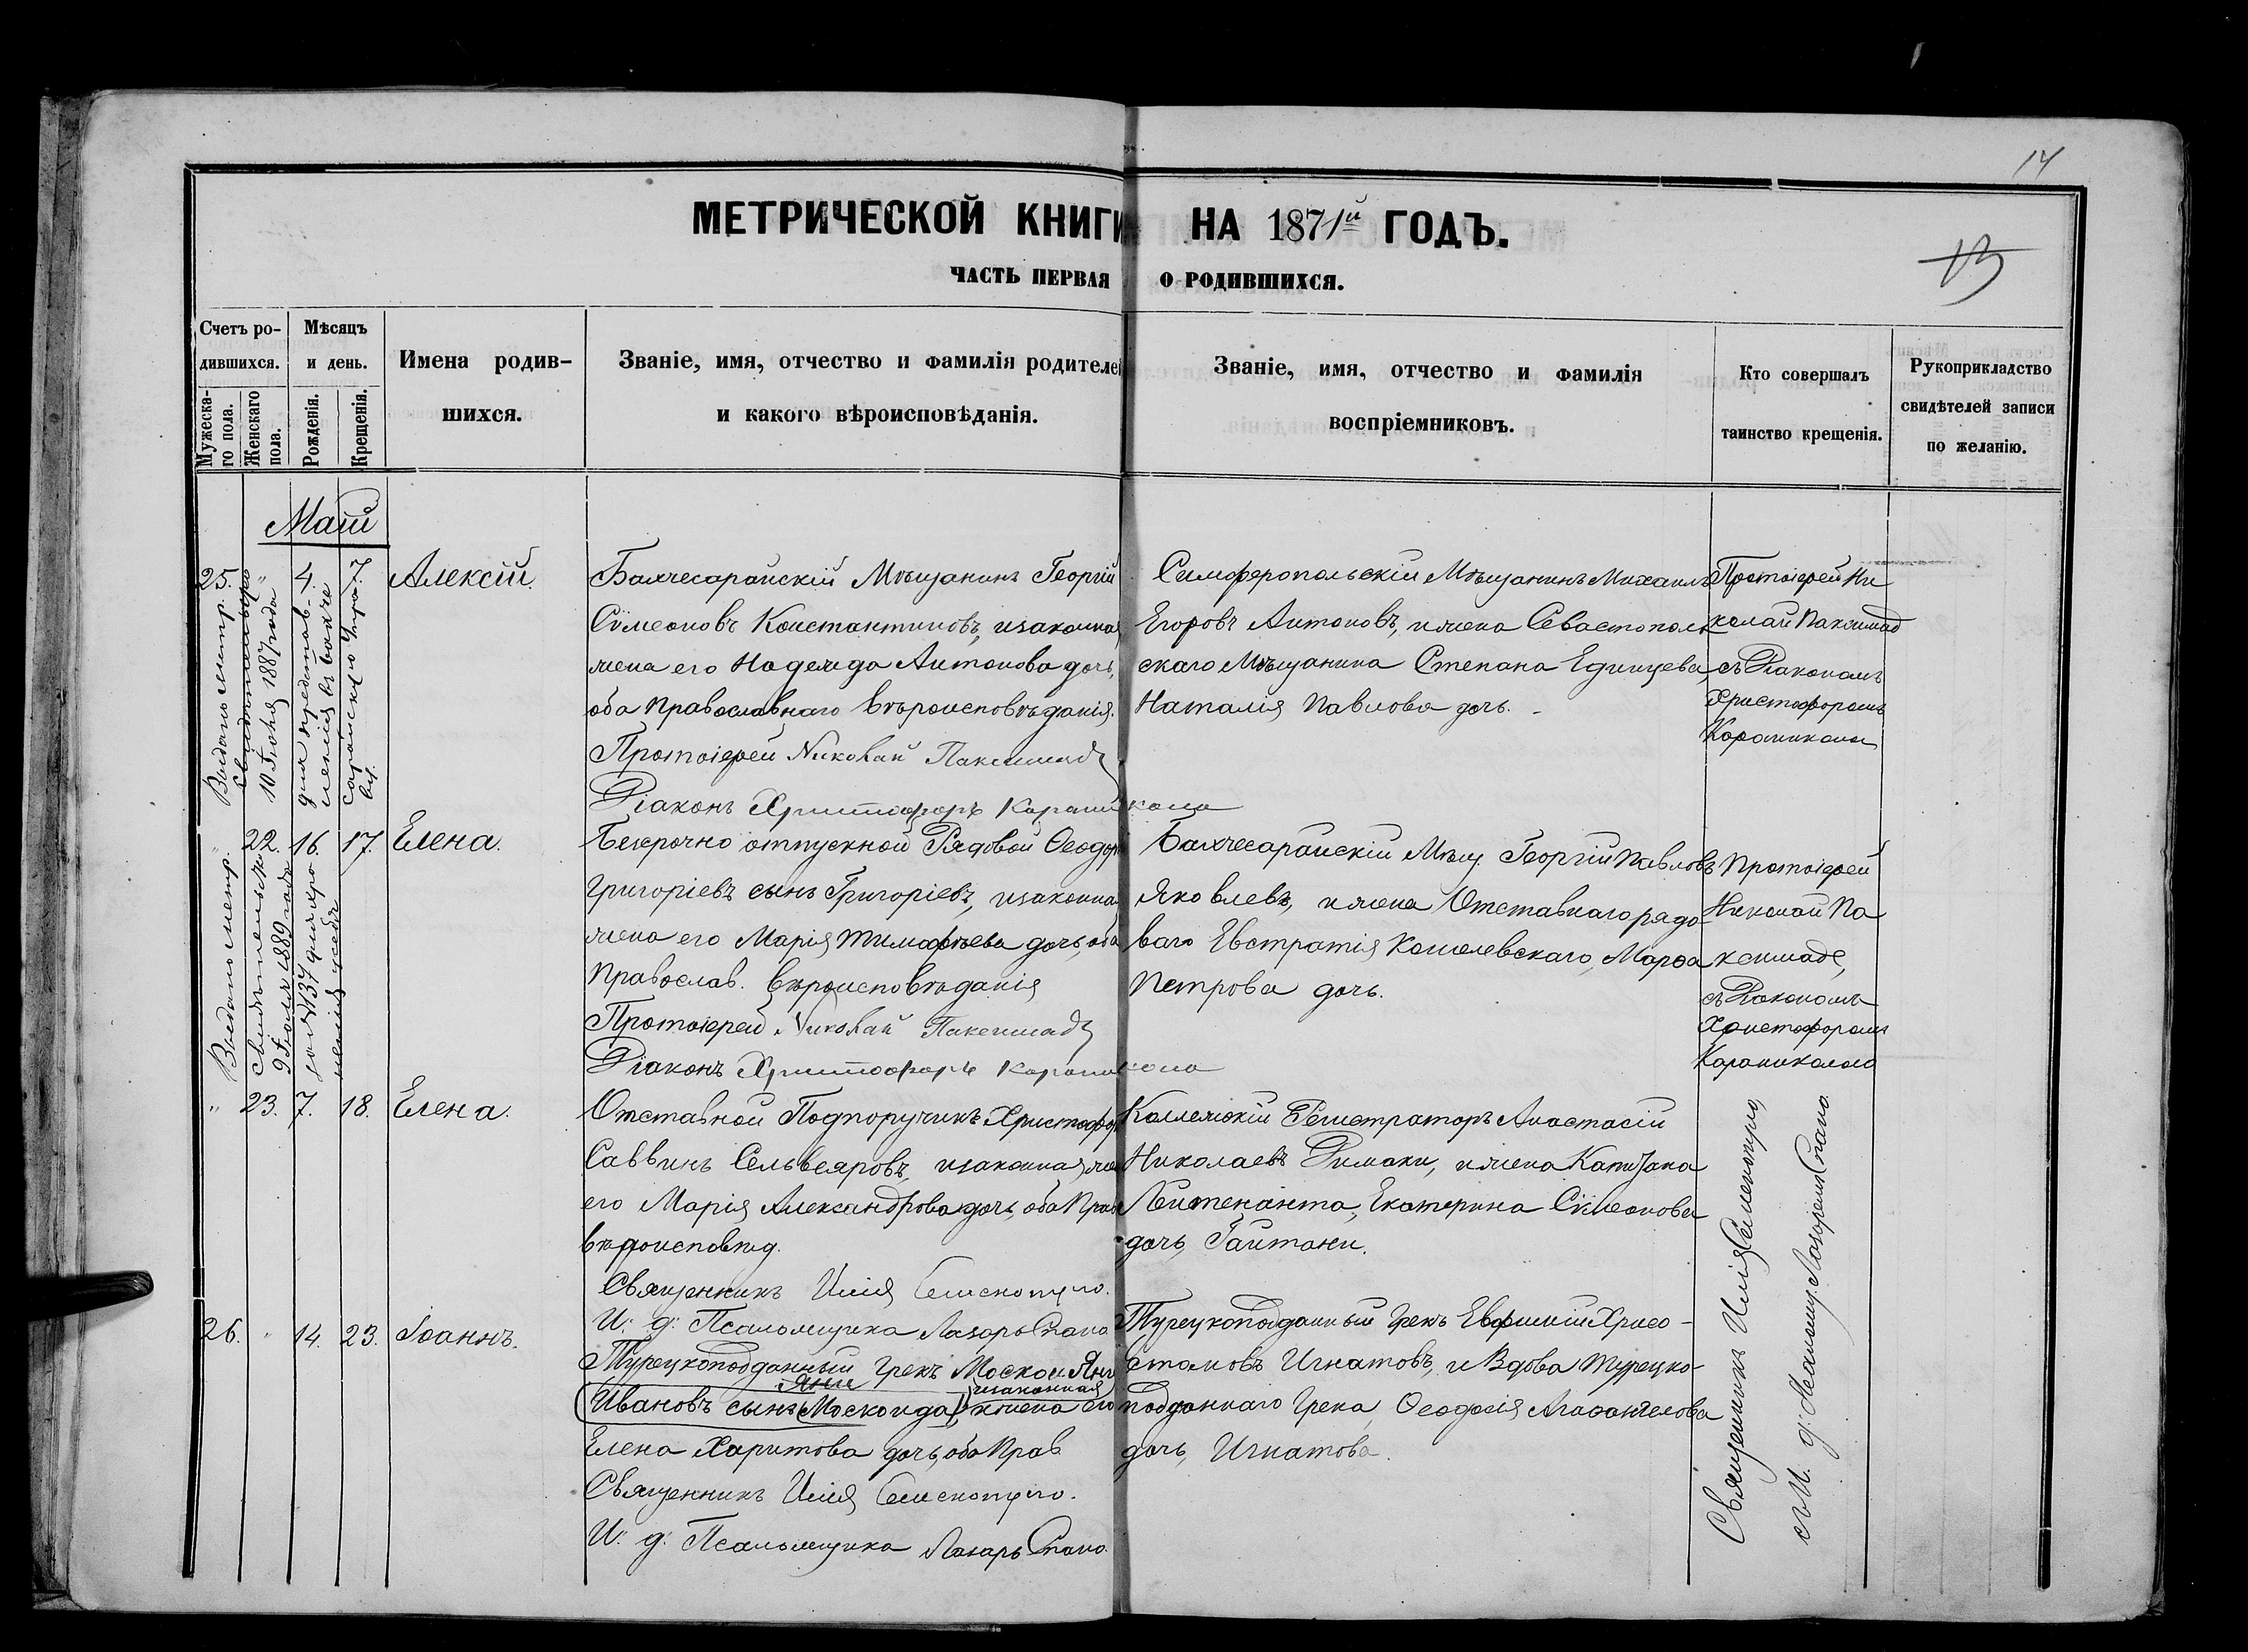 14
МЕТРИЧЕСКОЙ КНИГИ НА 1871й ГОДЪ.
13
ЧАСТЬ ПЕРВАЯ О РОДИВШИХСЯ.
Счетъ ро-
дившихся.
Мужеска-
го пола.
Женскаго
пола.
Мѣсяцъ
и день.
Рожденія.
Крещенія.
Имена родив-
шихся.
Званіе, имя, отчество и фамилія родителей
и какого вѣроисповѣданія.
Званіе, имя, отчество и фамилія
воспріемниковъ.
Кто совершалъ
таинство крещенія.
Рукоприкладство
свидѣтелей записи
по желанію.
Маій
25. " 4. 7. Алексій.
Выдано метр.
свидѣтельство
10 Іюня 1887 года
для представ-
ленія въ Бахче
сарайскую Упра-
ву.
Бахчесарайскій Мѣщанинъ Георгій
Сѵмеоновъ Константиновъ, изаконная
жена его Надежда Антонова дочь,
оба Православнаго вѣроисповѣданія.
Протоіерей Николай Паксимадъ
Діаконъ Христофоръ Караникола
Симферопольскій Мѣщанинъ Михаилъ
Егоровъ Антоновъ, ижена Севастополь
скаго Мѣщанина Степана Единцева,
Наталія Павлова дочь.
Протоіерей Ни
колай Паксимад
съ Діакономъ
Христофоромъ
Караникола
" 22. 16. 17. Елена.
Выдано метр.
свидѣтельство
9 Іюля 1889 года
за № 137 для хра
ненія у себя
Безсрочно отпускной Рядовой Ѳеодоръ
Григоріевъ сынъ Григоріевъ, изаконная
жена его Марія Тимофѣева дочь, оба
Православ. вѣроисповѣданія
Протоіерей Николай Паксимадъ
Діаконъ Христофоръ Караникола
Бахчесарайскій Мѣщ. Георгій Павловъ
Яковлевъ, ижена Отставнаго рядо-
ваго Евстратія Кошелевскаго, Марѳа
Петрова дочь.
Протоіерей
Николай Па
ксимадъ,
съ Діакономъ
Христофоромъ
Караниколою
" 23. 7. 18. Елена.
Отставной Подпоручикъ Христофоръ
Саввинъ Сельвеяровъ, изаконная жена
его Марія Александрова дочь, оба Прав
вѣроисповѣд.
Священникъ Илія
И: д: Псаломщика Лазарь Спано
Коллежскій Регистраторъ Анастасій
Николаевъ Римаки, ижена Капитана
Лейтенанта, Екатерина Сѵмеонова
дочь, Гайтани.
26. " 14. 23. Іоаннъ.
Турецкоподданный Грекъ Москои Яни
Яни изаконная
Ивановъ сынъ Москоида, ижена его
Елена Харитова дочь, оба Прав
Священникъ Илія
И: д: Псаломщика Лазарь Спано.
Турецкоподданный Грекъ Евфимій Хрисо-
стомовъ Игнатовъ, и Вдова Турецко-
подданнаго Грека Ѳеодосія Агаѳангелова
дочь, Игнатова.
Священникъ Илія
съ И. д: Псаломщ. Лазаремъ Спано